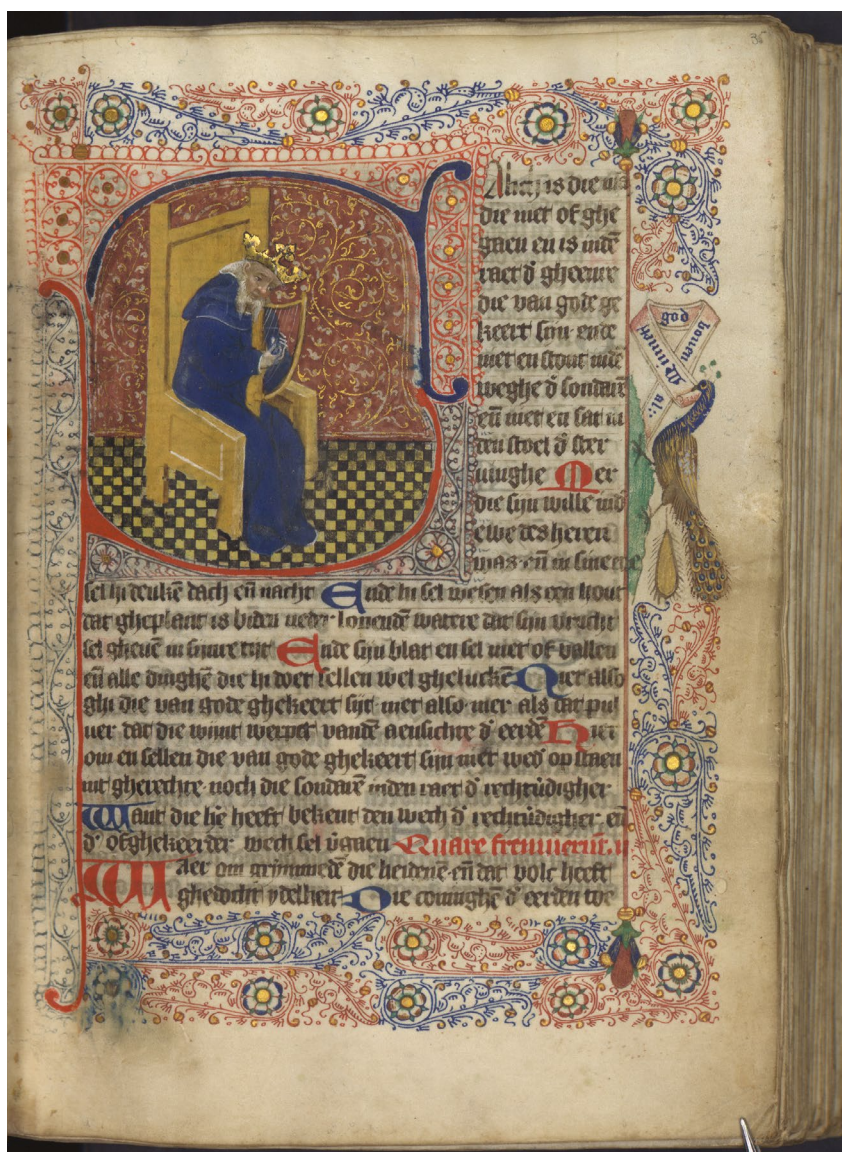 Alich is die man
die niet of ghe
gaen en is inden
raet d' gheenre
die van gode ge
keert sijn ende
niet en stout inde
weghe d' sondarē
eñ niet en sat in
den stoel d' ster
uinghe Mer
die sijn wille
ewe des heren
was eñ in sine ewe
sel hi denkē dach eñ nacht Ende hi sel wesen als een hout
dat gheplant is biden neder louendē watere dat sijn vrucht
sel gheuē in sijnre tijt Ende sijn blat en sel niet of vallen
eñ alle dinghē die hi doet sellen wel gheluckē Niet also
ghi die van gode ghekeert sijt niet also mer als dat pul
uer dat die wijnt werpet vandē aensichte d' eerdē Hier
om en sellen die van gode ghekeert sijn niet wed' op staen
int gherechte noch die sondarē inden raet d' rechtūdigher
Want die hē heeft bekent den wech d' rechtūdigher eñ
d' ofghekeerder wech sel ūgaen Quare fremuerūt
Waer om grimmedē die heidenē eñ dat volc heeft
ghedocht ydelheit Die coninghē d' eerden
god
bouen
al
86